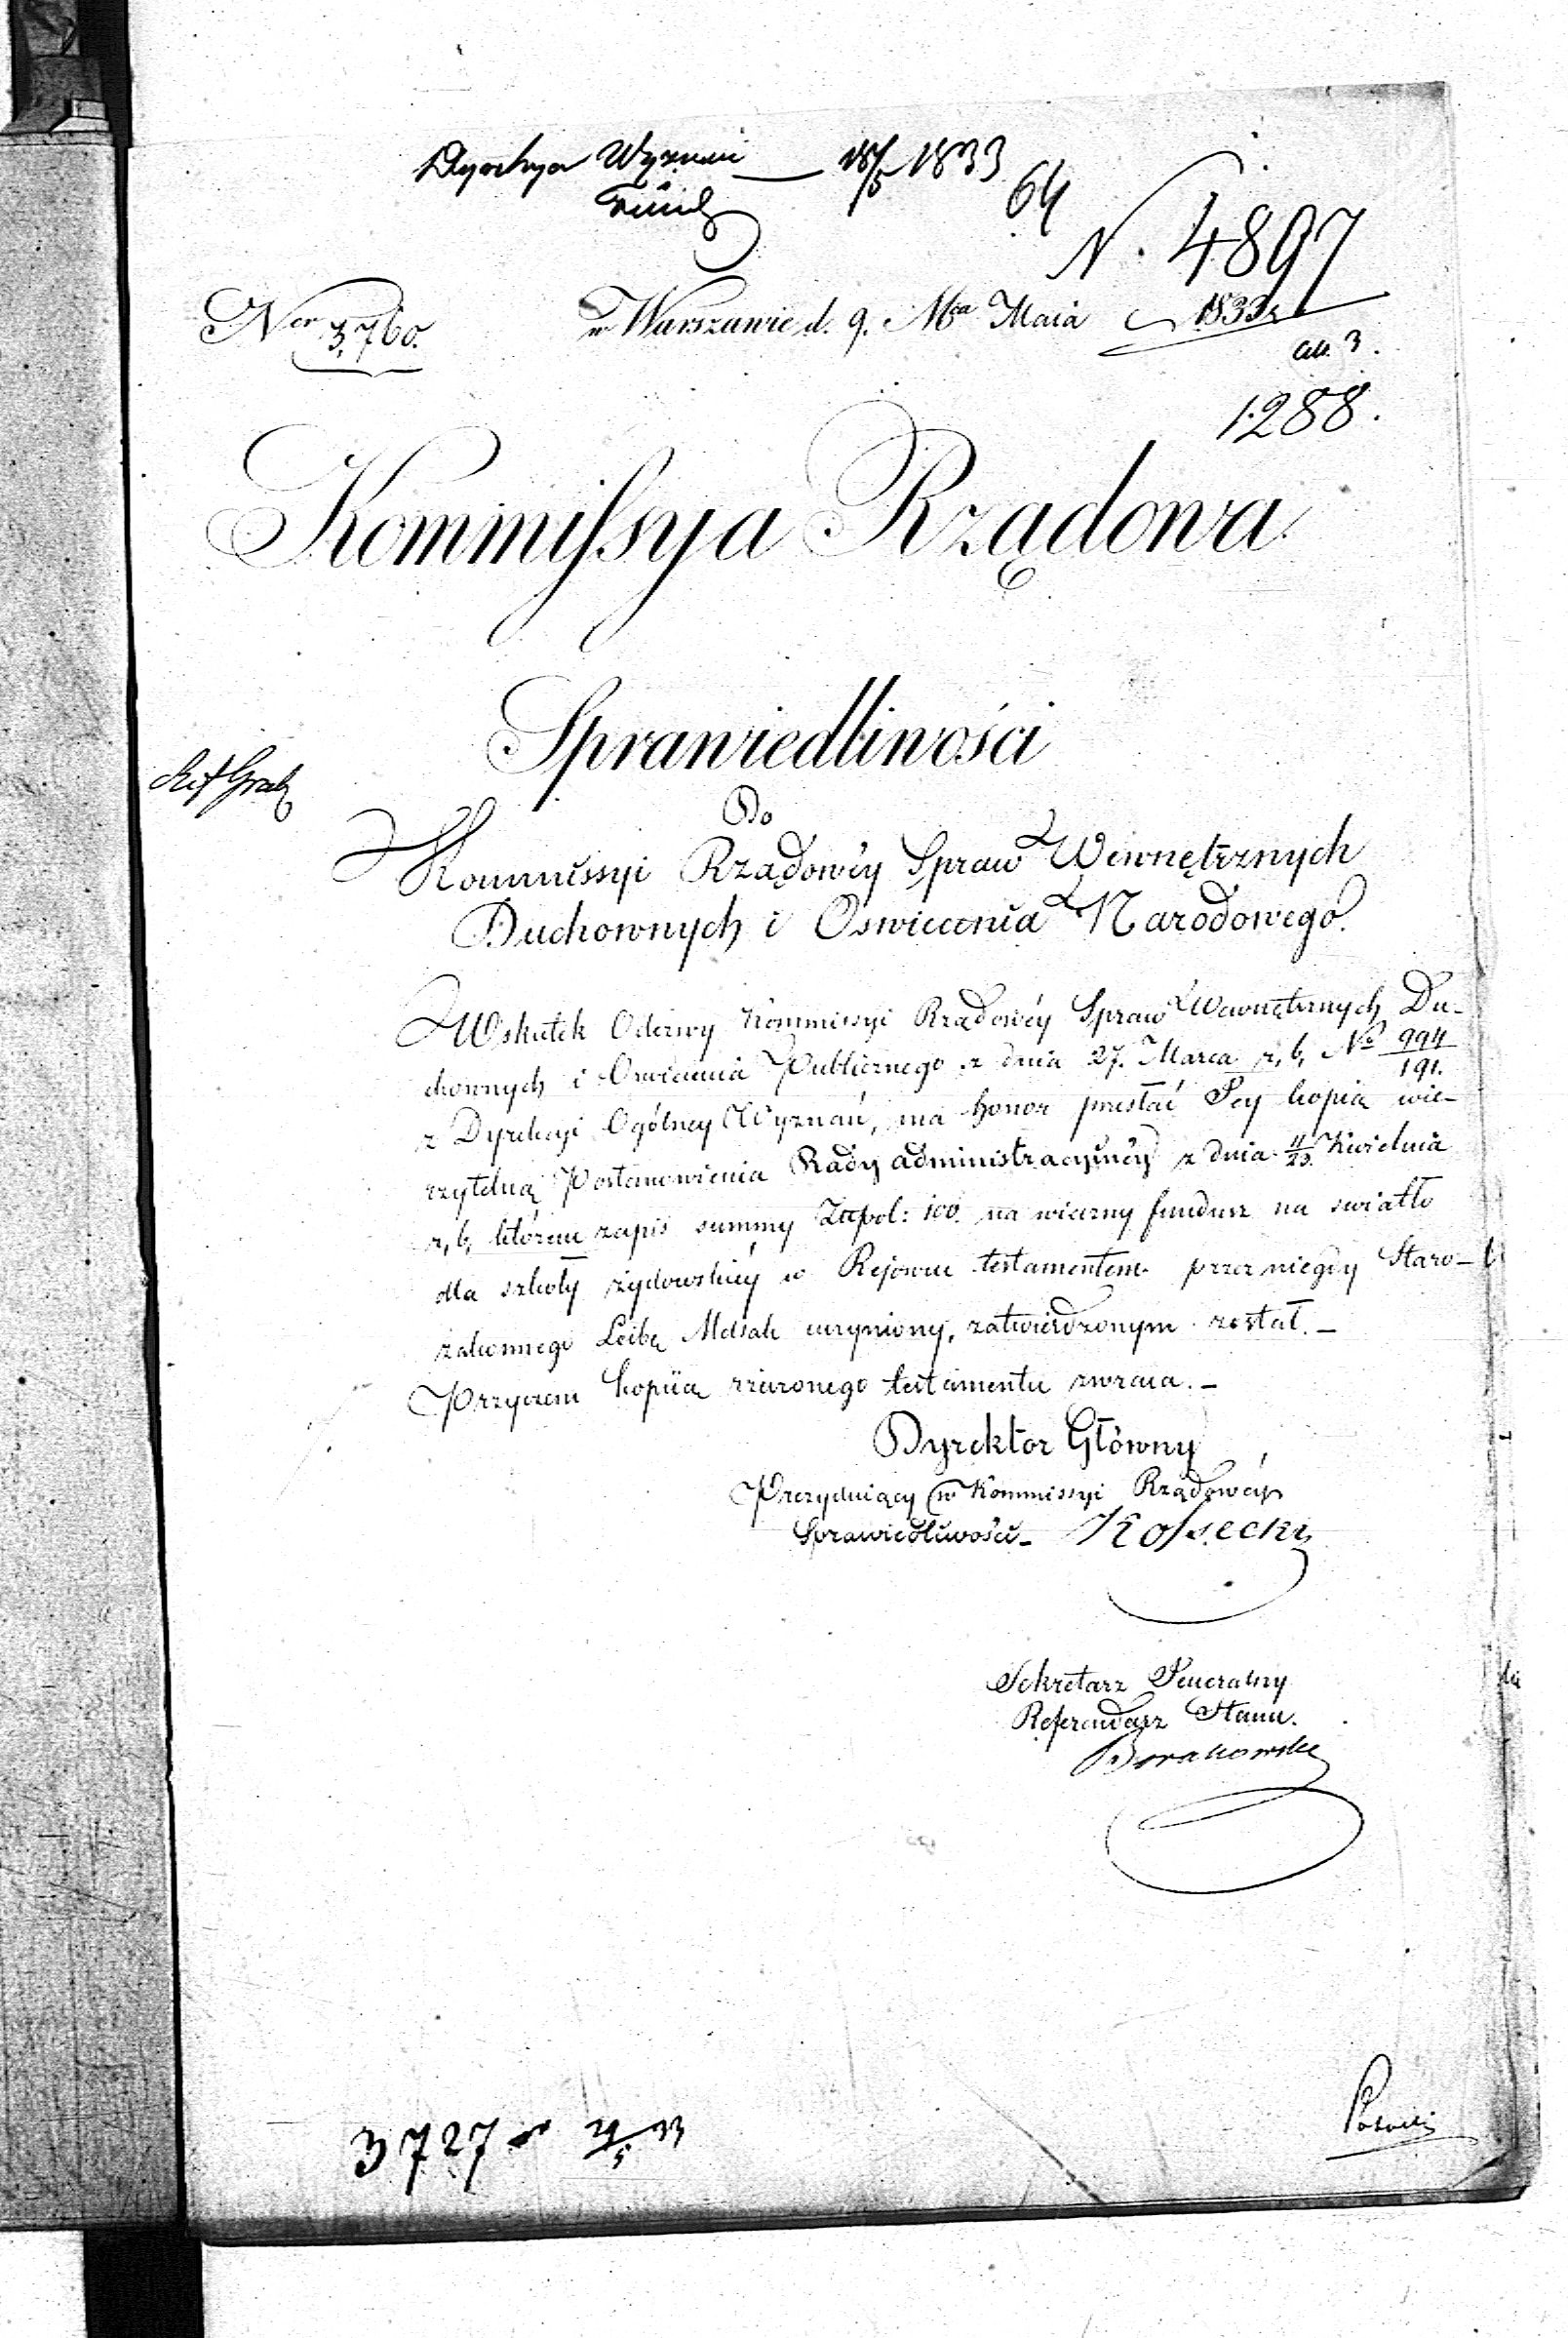 Dyrekcya Wyznań — 18/5 1833
64
N. 4897
Ner 3,760.
w Warszawie d. 9. Mca Maia 1833 r.
1288.
Kommissya Rządowa
Sprawiedliwości
Do
Kommissyi Rządowéy Spraw Wewnętrznych
Duchownych i Oswiecenia Narodowego.
Wskutek Odezwy Kommissyi Rządowéy Spraw Wewnętrznych Du-
chownych i Oswiecenia Publicznego z dnia 27. Marca r, b, No 994/191.
z Dyrekcyi Ogólney Wyznań, ma honor przesłać Jey kopią wie-
rzytelną Postanowienia Rady administracyinéy z dnia 11/23. Kwietnia
r, b, którem zapis summy Złłpol: 100. na wieczny fundusz na swiatło
dla szkoły żydowskiéy w Rejowcu testamentem przez niegdy Staro-
zakonnego Leibę Melsak uczyniony, zatwierdzonym został. —
Przyczem kopiią rzeczonego testamentu zwraca. —
Dyrektor Główny
Prezyduiący w Kommissyi Rządowéy
Sprawiedliwości — Kossecki
Sekretarz Jeneralny
Referendarz Stanu.
3727